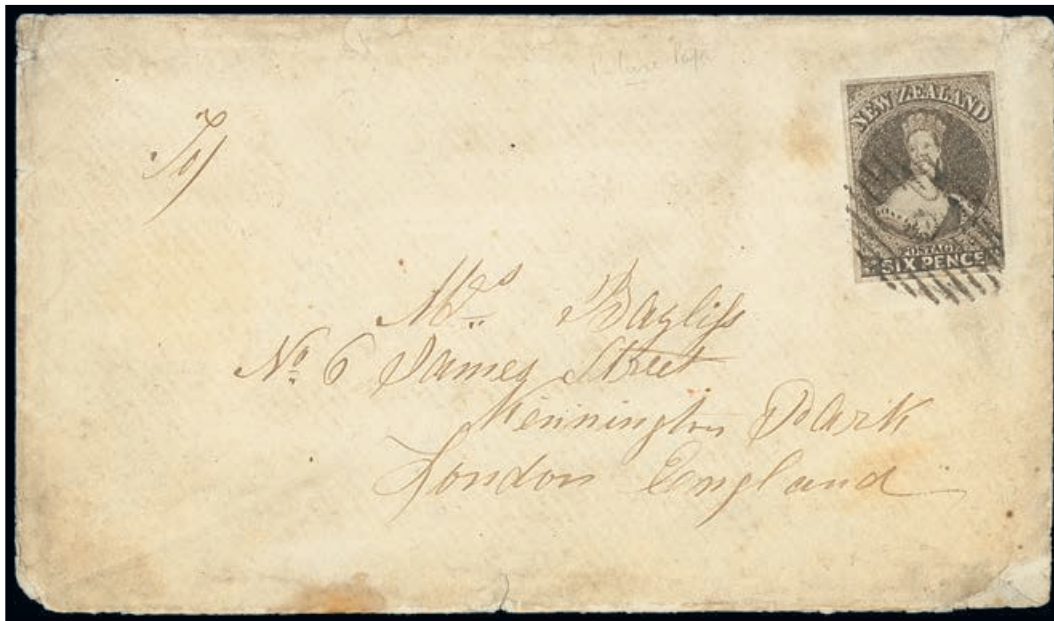 NEW ZEALAND
POSTAGE
SIX PENCE
To
Mrs Bayliss
No. 6 James Street
Kennington Park
London England